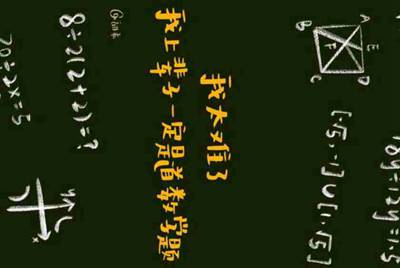 A
B
E
F
D
C
[-√5,-1]∪[1,√5]
我太难了
我上辈子一定是道数学题
8÷2(2+2)=?
20÷2x=5